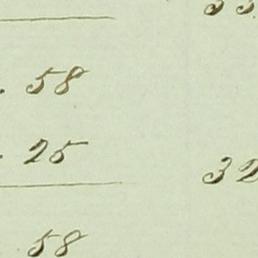 58
25 32
58